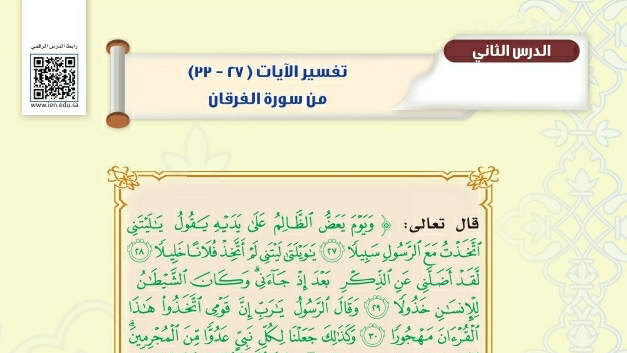 رابط الدرس الرقمي
www.ien.edu.sa
الدرس الثاني
تفسير الآيات (٢٧ - ٣٢)
من سورة الفرقان
قال تعالى: ﴿ وَيَوْمَ يَعَضُّ الظَّالِمُ عَلَىٰ يَدَيْهِ يَقُولُ يَٰلَيْتَنِي
ٱتَّخَذْتُ مَعَ ٱلرَّسُولِ سَبِيلًا ٢٧ يَٰوَيْلَتَىٰ لَيْتَنِي لَمْ أَتَّخِذْ فُلَانًا خَلِيلًا ٢٨
لَّقَدْ أَضَلَّنِي عَنِ ٱلذِّكْرِ بَعْدَ إِذْ جَآءَنِي وَكَانَ ٱلشَّيْطَٰنُ
لِلْإِنسَٰنِ خَذُولًا ٢٩ وَقَالَ ٱلرَّسُولُ يَٰرَبِّ إِنَّ قَوْمِي ٱتَّخَذُوا۟ هَٰذَا
ٱلْقُرْءَانَ مَهْجُورًا ٣٠ وَكَذَٰلِكَ جَعَلْنَا لِكُلِّ نَبِيٍّ عَدُوًّا مِّنَ ٱلْمُجْرِمِينَ